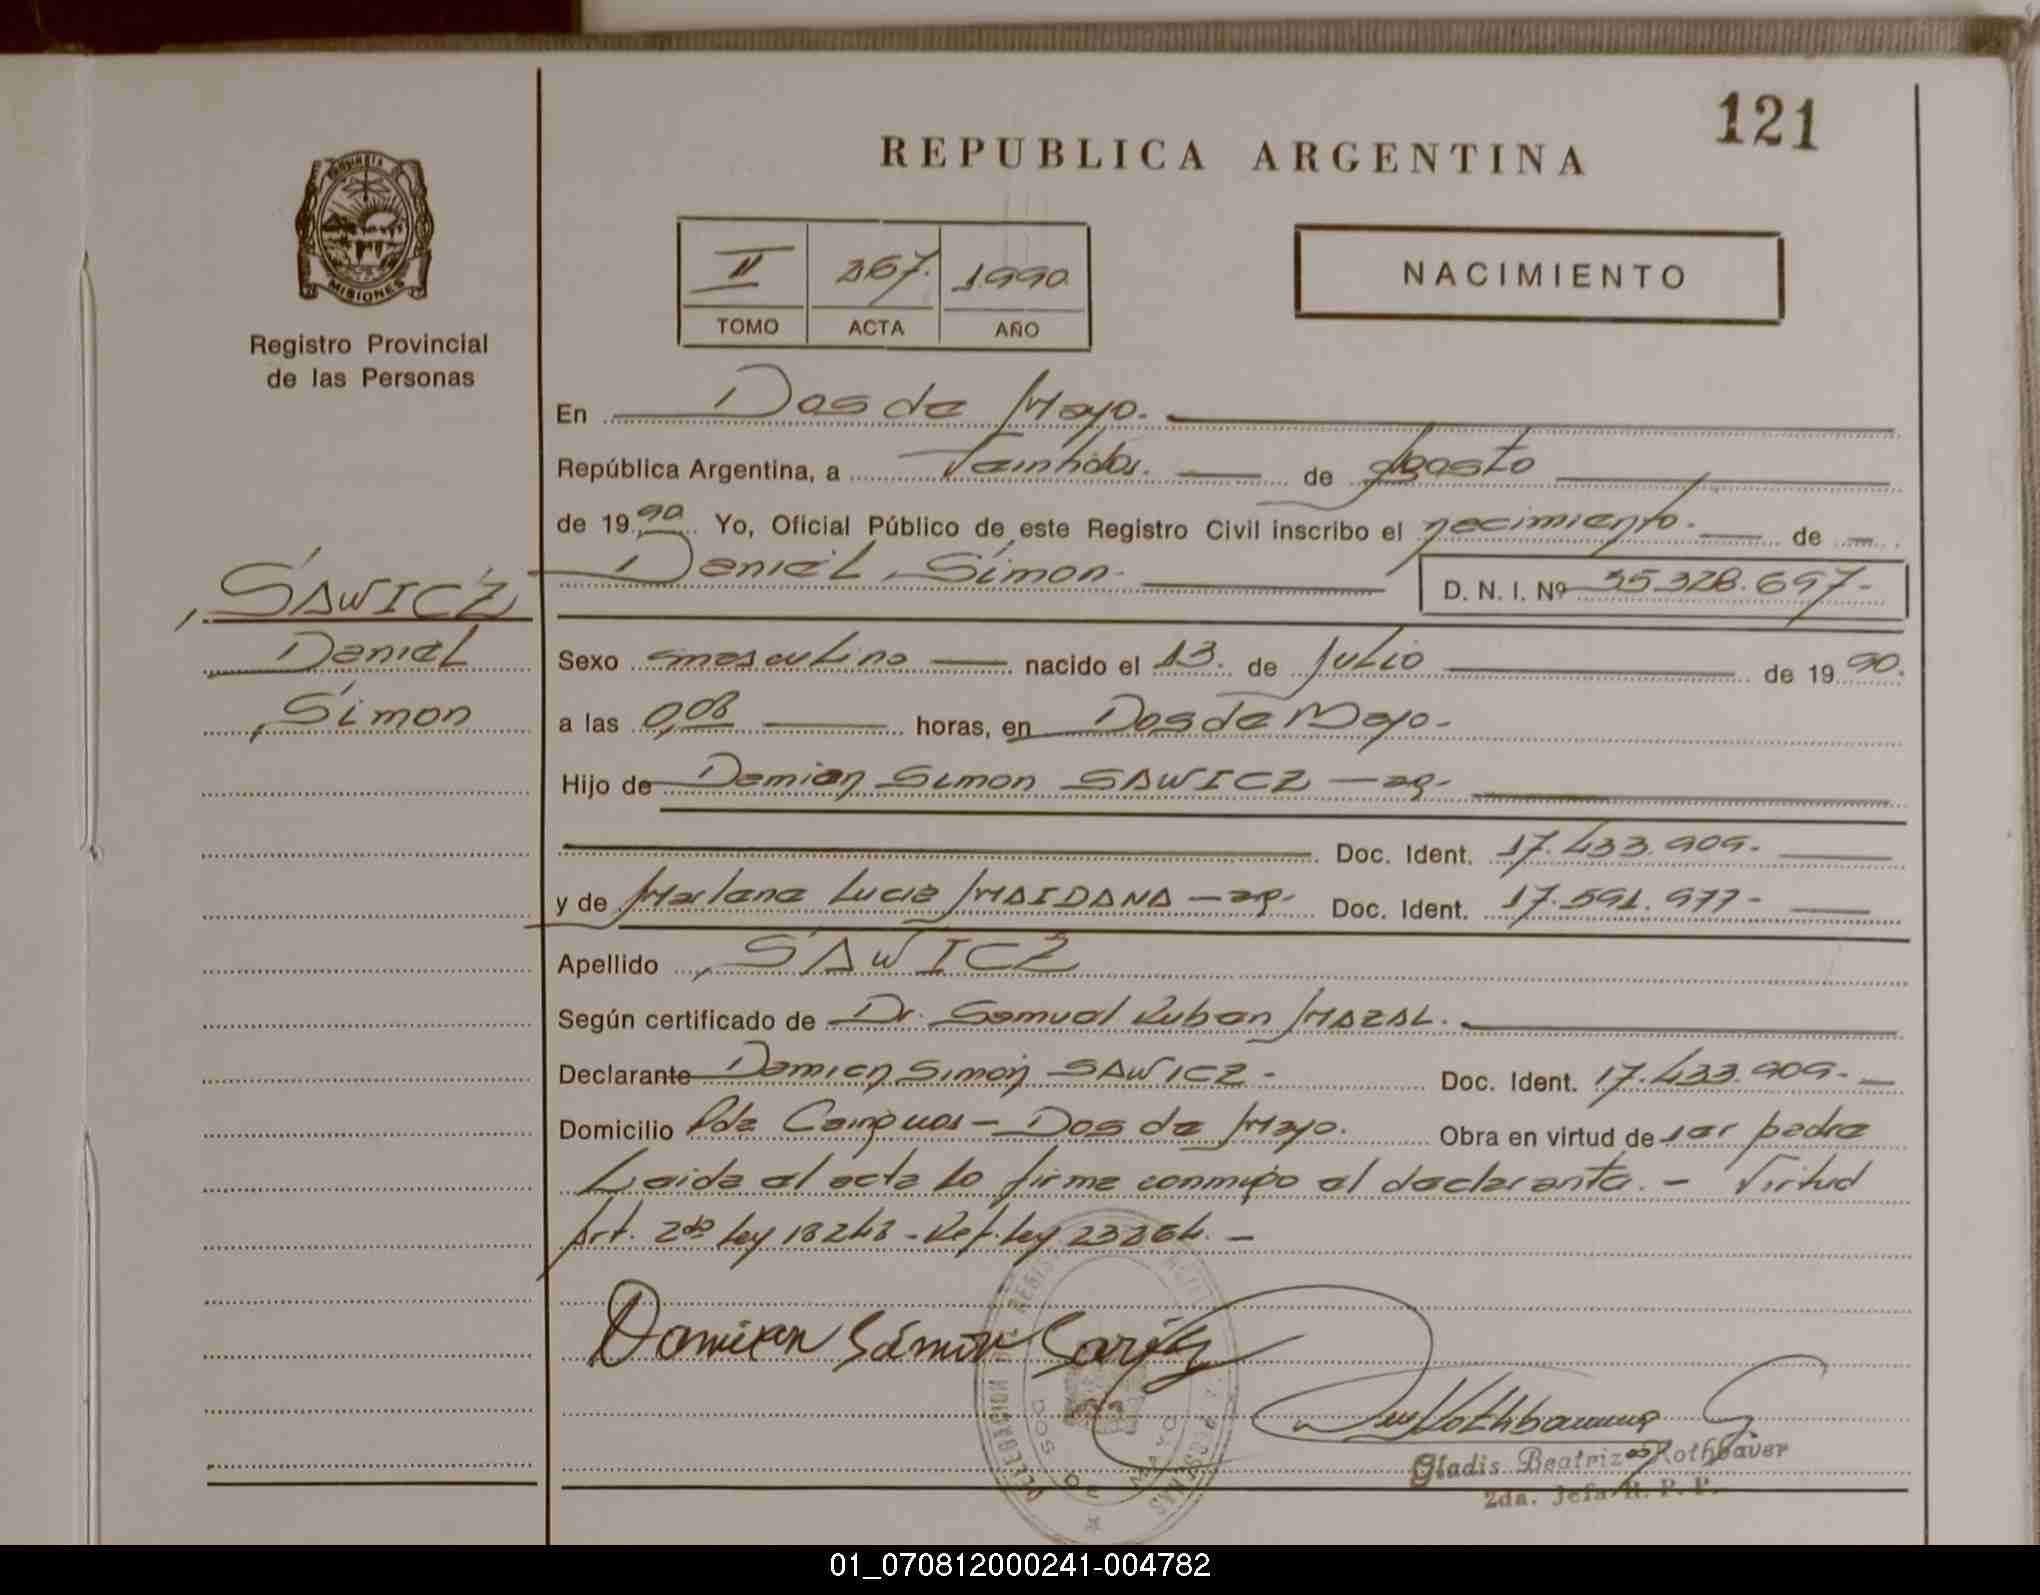 121
REPUBLICA ARGENTINA
MISIONES
Registro Provincial
de las Personas
II 267. 1990
TOMO ACTA AÑO
NACIMIENTO
En Dos de Mayo.
República Argentina, a Veintidos. de Agosto
de 1990 Yo, Oficial Público de este Registro Civil inscribo el nacimiento. de
Daniel Simon
D. N. I. Nº 35.328.697-
SAWICZ
Daniel
Simon
Sexo masculino nacido el 13. de Julio de 1990.
a las 0,08 horas, en Dos de Mayo-
Hijo de Damian Simon SAWICZ - ag-
Doc. Ident. 17.433.909-
y de Marlene Lucia MAIDANA - ag- Doc. Ident. 17.591.977-
Apellido SAWICZ
Según certificado de Dr. Samuel Ruben MAZAL.
Declarante Damian Simon SAWICZ- Doc. Ident. 17.433.909-
Domicilio Pda - Dos de Mayo. Obra en virtud de ser padre
Leida el acta la firma conmigo el declarante. - Virtud
Art. 2do Ley 18248 - Ref. Ley 23264. -
Damian Simon
DELEGACION
DOS DE MAYO
Gladis Beatriz Rothbaver
2da. Jefa R. P. P.
01_070812000241-004782